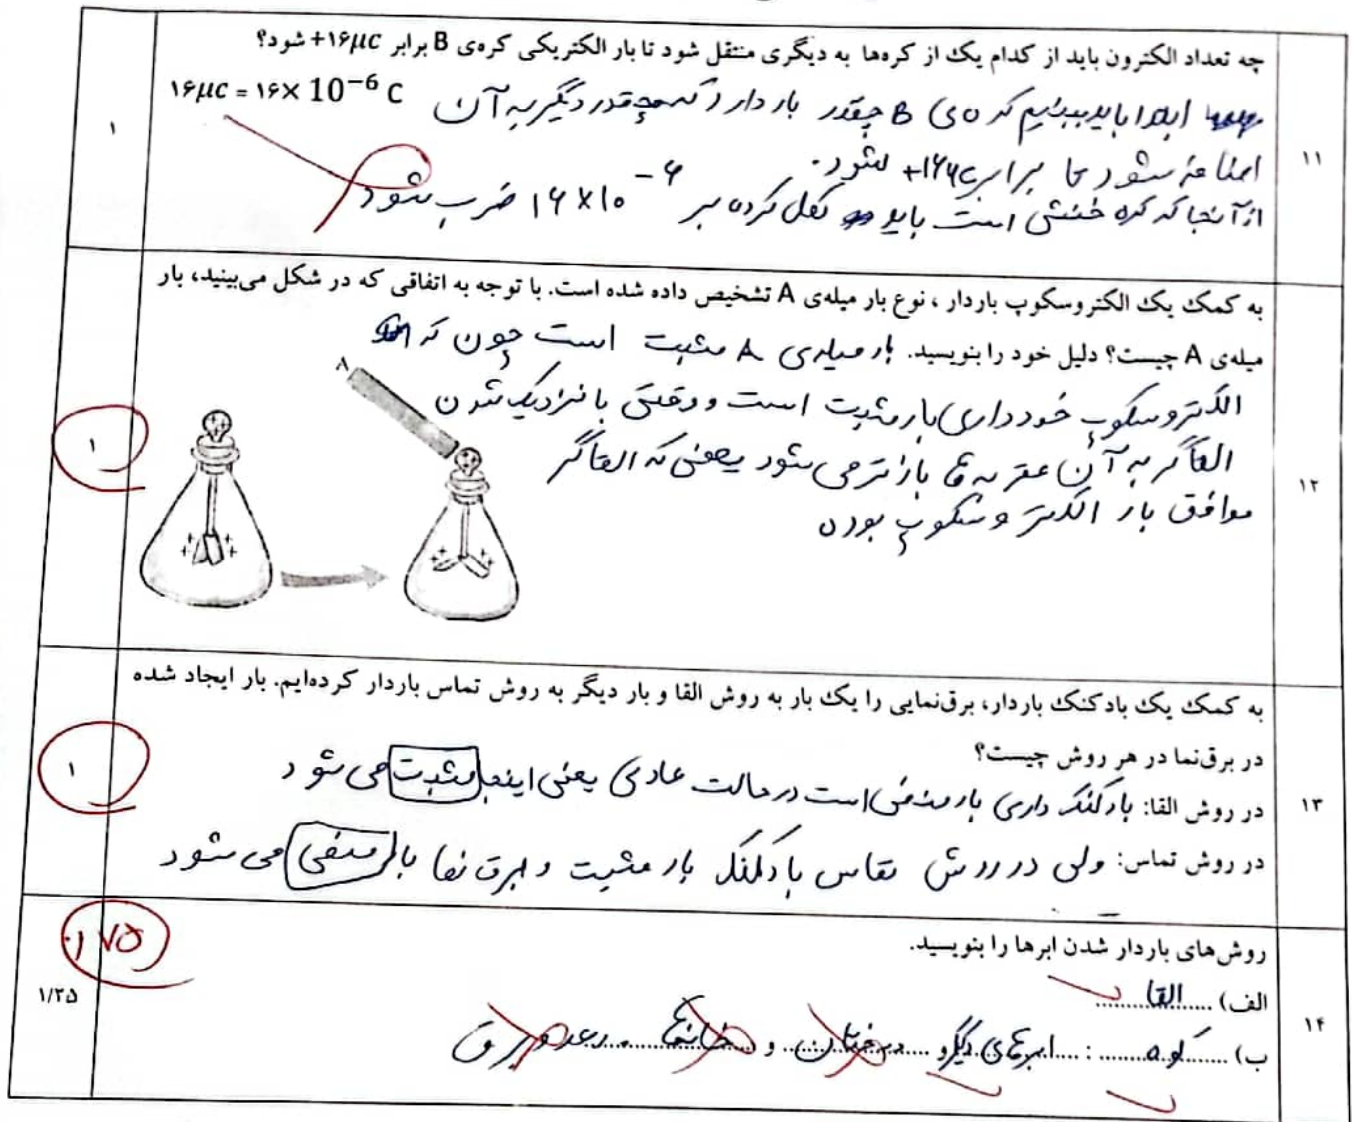 ۱۱
چه تعداد الکترون باید از کدام یک از کره‌ها به دیگری منتقل شود تا بار الکتریکی کره‌ی B برابر +۱۶μc شود؟
۱۶μc = ۱۶× 10⁻⁶ C
ابتدا باید ببینیم کره ی B چقدر بار دارد که چقدر دیگر به آن
اضافه شود تا برابر +۱۶μc شود.
از آنجا که کره خنثی است باید نقل کرده بر ۱۶×۱۰⁻۶ ضرب شود
۱
۱۲
به کمک یک الکتروسکوپ باردار ، نوع بار میله‌ی A تشخیص داده شده است. با توجه به اتفاقی که در شکل می‌بینید، بار
میله‌ی A چیست؟ دلیل خود را بنویسید. بار میله‌ی A مثبت است چون که
الکتروسکوپ خود دارای بار مثبت است و وقتی با نزدیک شدن
القاگر به آن عقربه ها بازتر می شود یعنی که القاگر
موافق بار الکتروسکوپ بوده
A
۱
۱۳
به کمک یک بادکنک باردار، برق‌نمایی را یک بار به روش القا و بار دیگر به روش تماس باردار کرده‌ایم. بار ایجاد شده
در برق‌نما در هر روش چیست؟
در روش القا: بادکنک داری بار منفی است در حالت عادی یعنی اینجا مثبت می شود
در روش تماس: ولی در روش تماس بادکنک بار مثبت و برق نما بار منفی می شود
۱
۱۴
روش‌های باردار شدن ابرها را بنویسید.
الف) ....القا....
ب) ....کوه.... : ....ابرهای دیگر و ....درختان.... و ....خانه‌ها.... رعد و برق
۰/۷۵
۱/۲۵